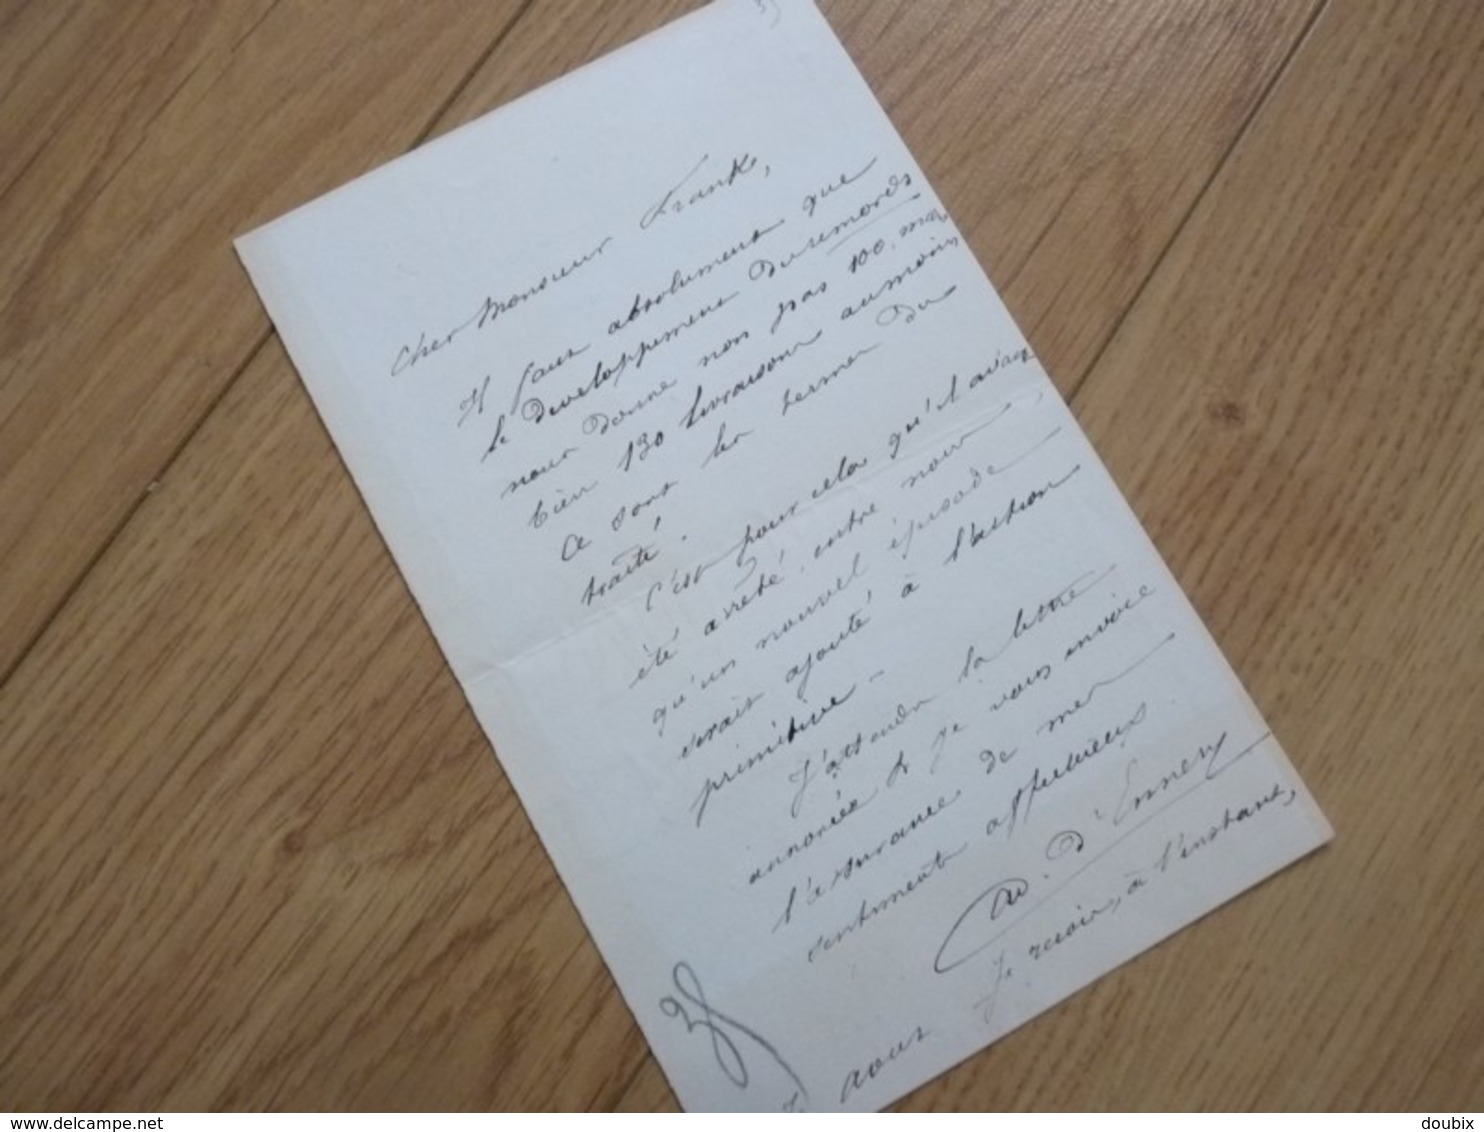 Cher Monsieur Frank,
Il faut absolument que
le développement du remords
nous donne non pas 100, mais
bien 130 livraisons au moins
Ce sont les termes du
traité.
C'est pour cela qu'il avait
été arrêté, entre nous,
qu'un nouvel épisode
serait ajouté à l'action
primitive -
J'attends la lettre
annoncée & je vous envoie
l'assurance de mes
sentiments affectueux.
Ad. d'Ennery
Je reçois, à l'instant,
août
www.delcampe.net
doubix